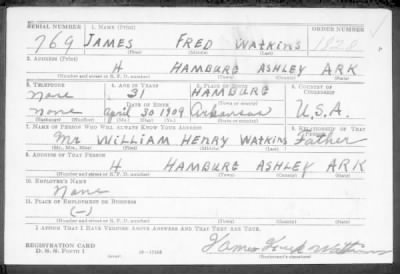 SERIAL NUMBER 1. NAME (Print) ORDER NUMBER
769 JAMES FRED WATKINS 1828
(First) (Middle) (Last)
2. ADDRESS (Print)
H HAMBURG ASHLEY ARK
(Number and street or R. F. D. number) (Town) (County) (State)
3. TELEPHONE 4. AGE IN YEARS 5. PLACE OF BIRTH 6. COUNTRY OF CITIZENSHIP
None 31 HAMBURG
DATE OF BIRTH (Town or county)
None April 30 1909 Arkansas U.S.A.
(Exchange) (Number) (Mo.) (Day) (Yr.) (State or country)
7. NAME OF PERSON WHO WILL ALWAYS KNOW YOUR ADDRESS 8. RELATIONSHIP OF THAT PERSON
Mr WILLIAM HENRY WATKINS Father
(Mr., Mrs., Miss) (First) (Middle) (Last)
9. ADDRESS OF THAT PERSON
H HAMBURG ASHLEY ARK
(Number and street or R. F. D. number) (Town) (County) (State)
10. EMPLOYER'S NAME
None
11. PLACE OF EMPLOYMENT OR BUSINESS
(—)
(Number and street or R. F. D. number) (Town) (County) (State)
I AFFIRM THAT I HAVE VERIFIED ABOVE ANSWERS AND THAT THEY ARE TRUE.
REGISTRATION CARD
D. S. S. FORM 1 James Fred Watkins
(over) (Registrant's signature)